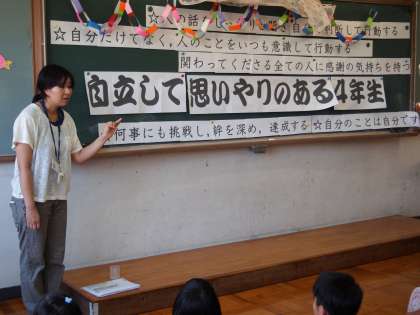 ☆自分だけでなく、人のことをいつも意識して行動する
関わってくださる全ての人に感謝の気持ちを持つ
自立して思いやりのある4年生
何事にも挑戦し,絆を深め,達成する ☆自分のことは自分で